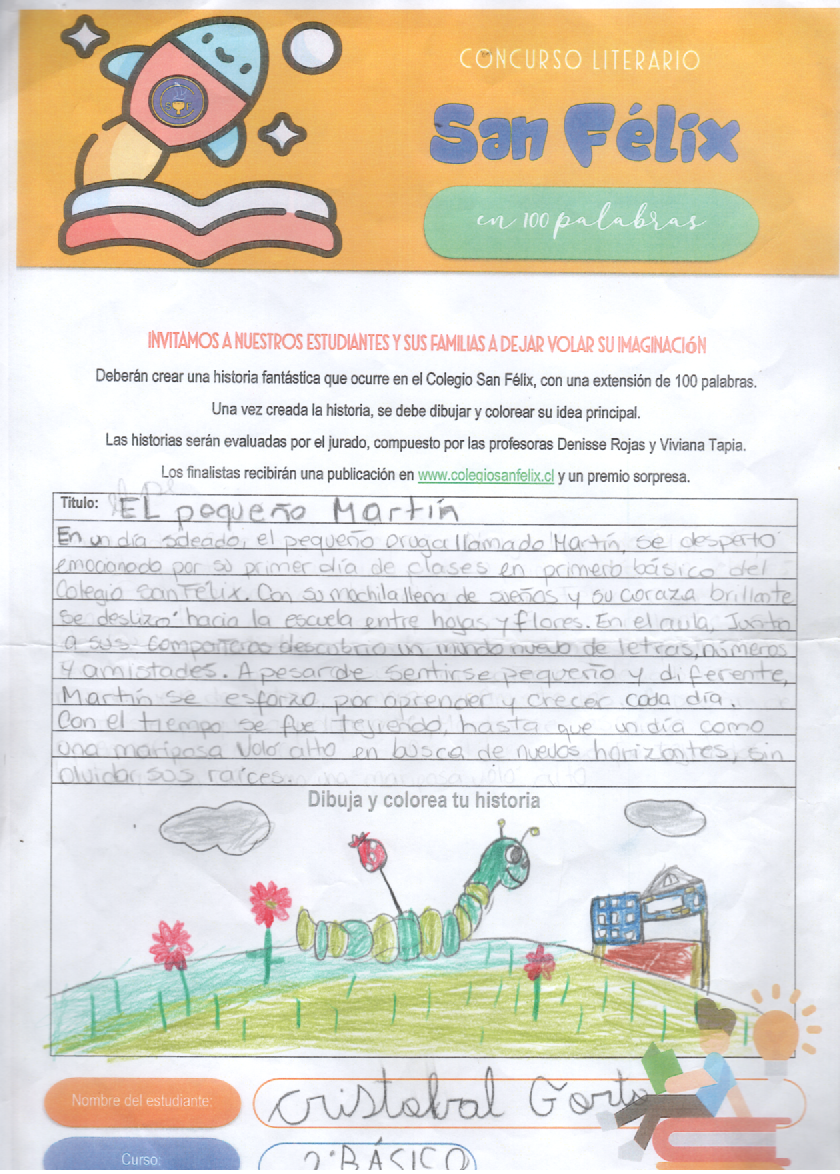 CONCURSO LITERARIO
San Félix
en 100 palabras
INVITAMOS A NUESTROS ESTUDIANTES Y SUS FAMILIAS A DEJAR VOLAR SU IMAGINACIÓN
Deberán crear una historia fantástica que ocurre en el Colegio San Félix, con una extensión de 100 palabras.
Una vez creada la historia, se debe dibujar y colorear su idea principal.
Las historias serán evaluadas por el jurado, compuesto por las profesoras Denisse Rojas y Viviana Tapia.
Los finalistas recibirán una publicación en www.colegiosanfelix.cl y un premio sorpresa.
Título: EL pequeño Martín
En un día soleado, el pequeño oruga llamado Martín, se desperto
emocionado por su primer día de clases en primero básico del
Colegio San Félix. Con su mochila llena de sueños y su coraza brillante
se deslizó hacia la escuela entre hojas y flores. En el aula, Junto
a sus compañeros descubrio un mundo nuevo de letras, números
y amistades. A pesar de sentirse pequeño y diferente,
Martín se esforzo por aprender y crecer cada día.
Con el tiempo se fue tejiendo, hasta que un día como
una mariposa voló alto en busca de nuevos horizontes, sin
olvidar sus raíces.
Dibuja y colorea tu historia
Nombre del estudiante: Cristobal
Curso: 2° BÁSICO